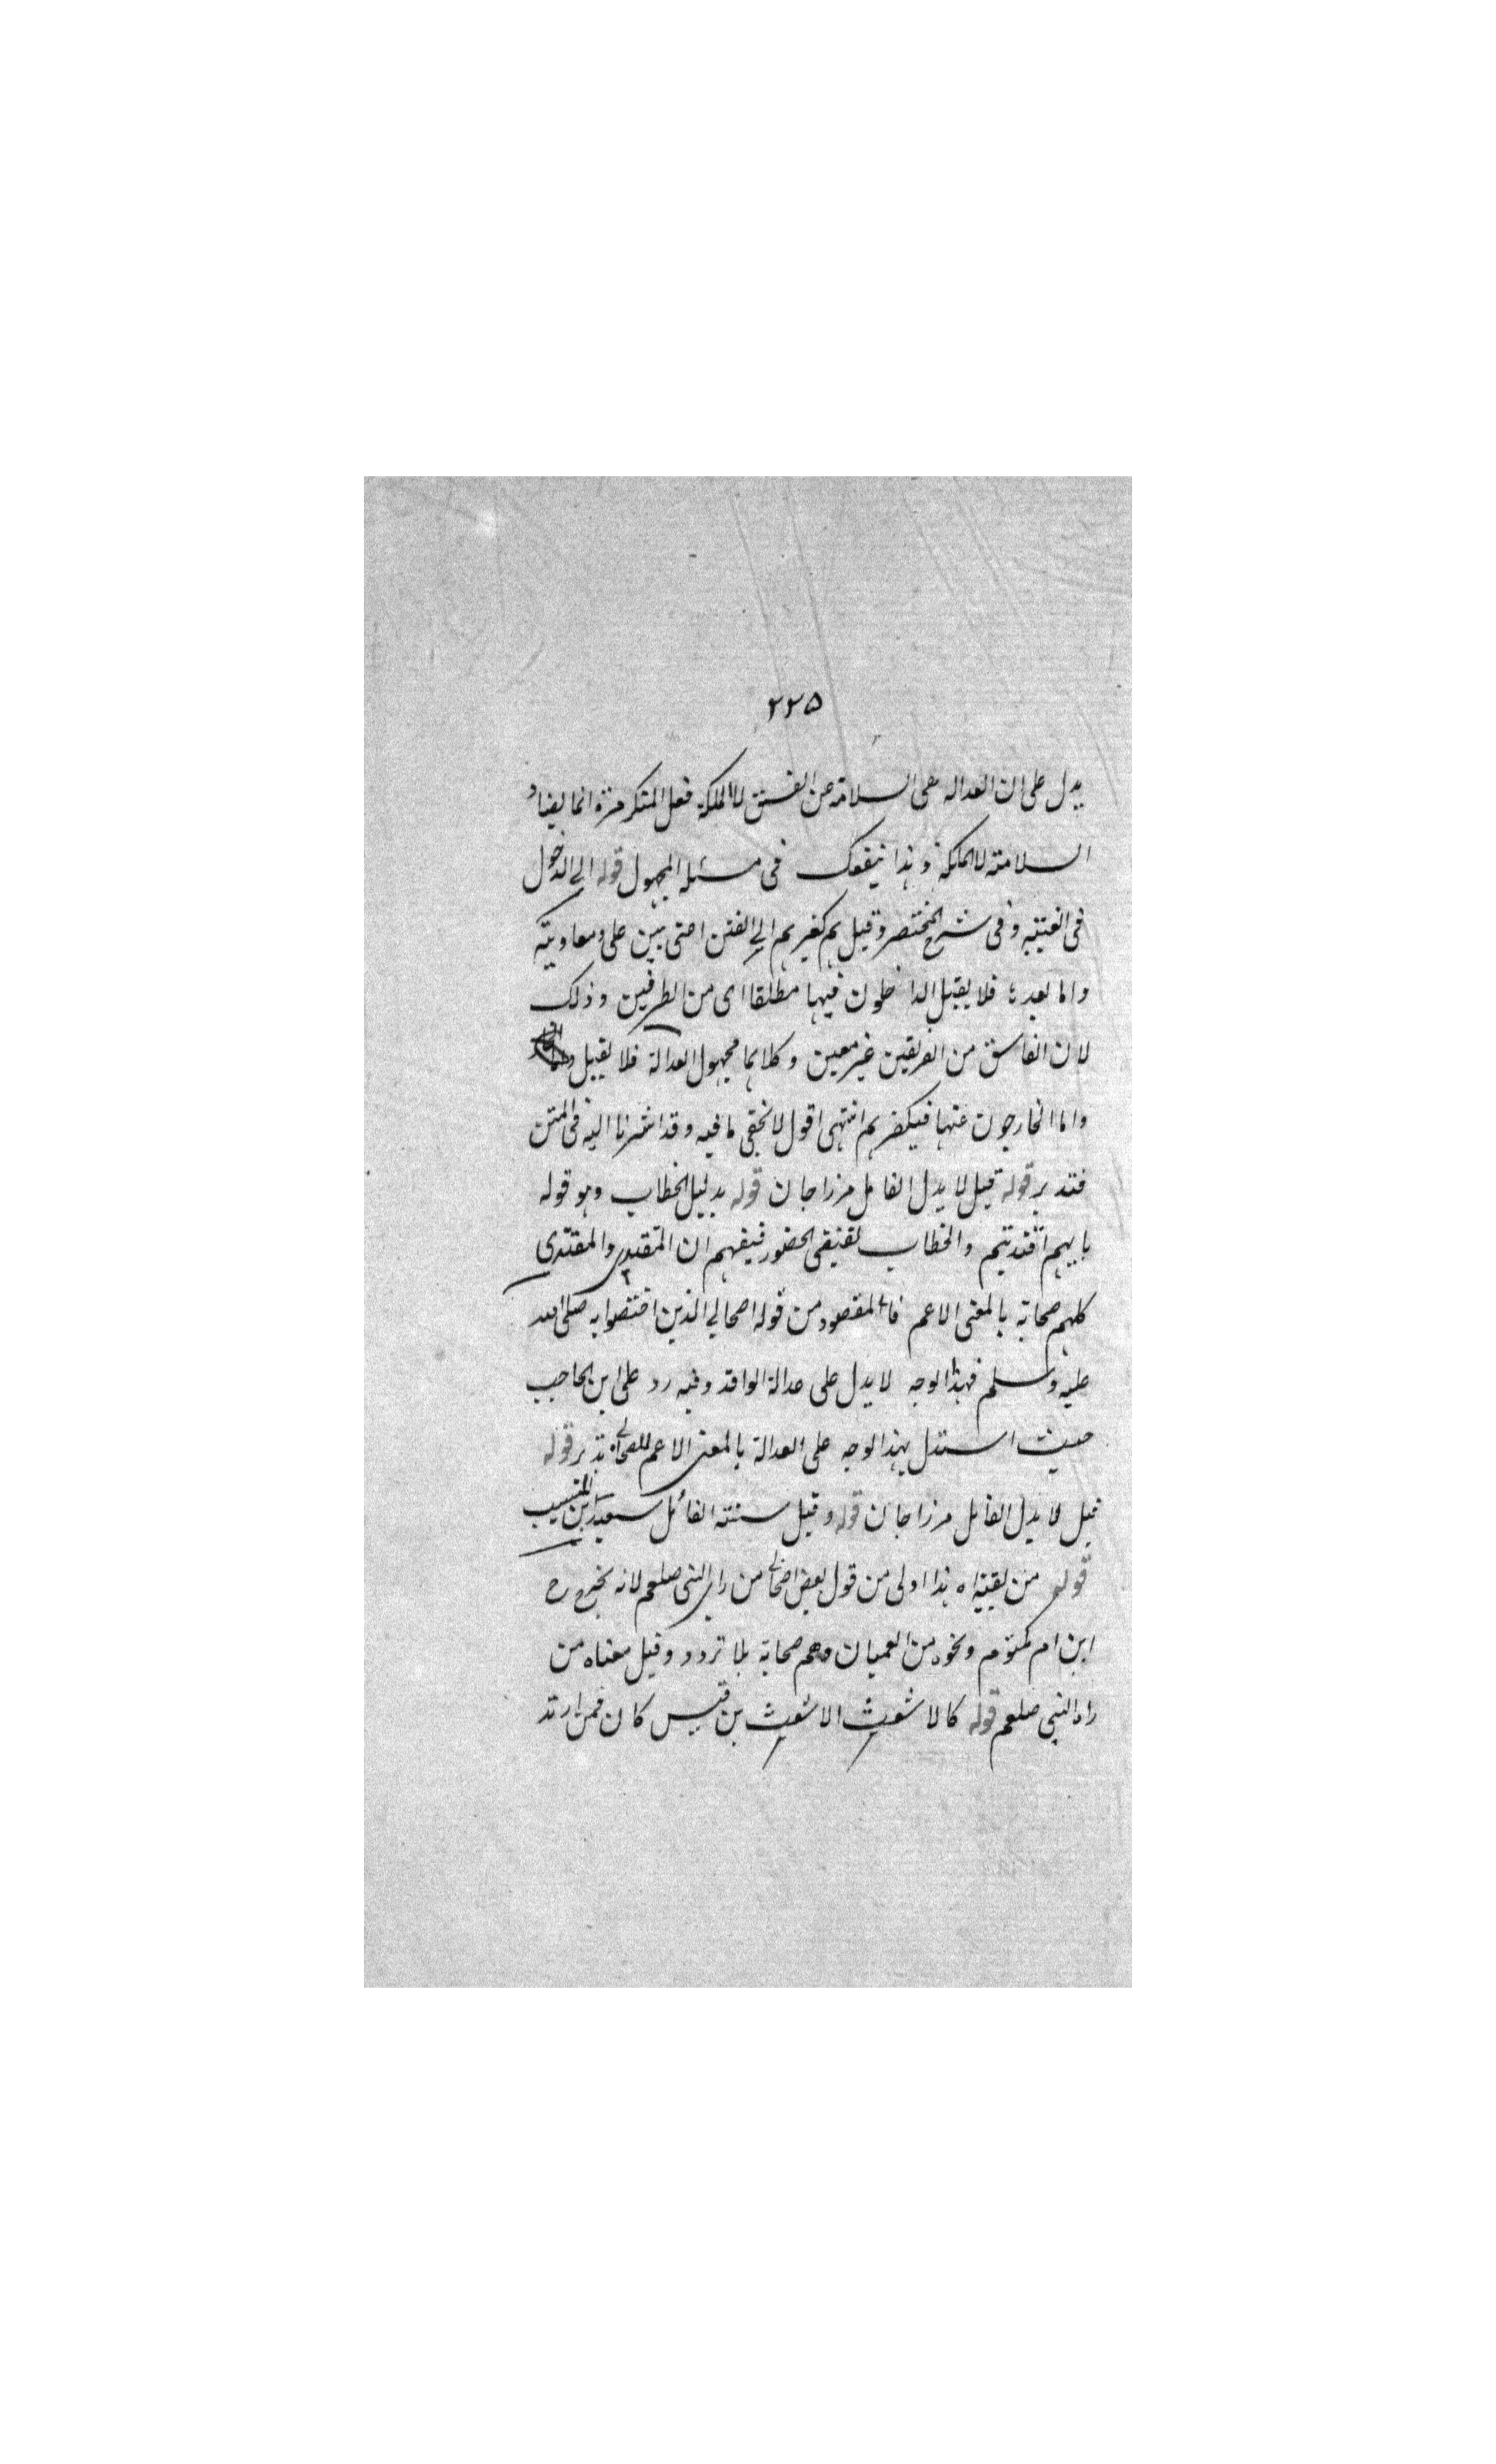 ٢٢٥
يدل على ان العدالة هى السلامة عن الفسق لا الملكة فعل المنكر مرة انما يضاد
السلامة لا الملكة وهذا ينفعك فى مسئلة المجهول قوله الى الدخول
فى الفتنة وفى شرح المختصر وقيل هم كغيرهم الى الفتن اعنى بين على ومعاوية
واما بعدها فلا يقبل الداخلون فيها مطلقا اى من الطرفين وذلك
لان الفاسق من الفريقين غير معين وكلاهما مجهول العدالة فلا يقبل
واما الخارجون عنها فكغيرهم انتهى اقول لا يخفى ما فيه وقد اشرنا اليه فى المتن
فتدبر قوله قيل لا يدل القائل مرزاجان قوله بدليل الخطاب وهو قوله
بايهم اقتديتم والخطاب يقتضى الحضور فيفهم ان المقتدى والمقتدى
كلهم صحابة بالمعنى الاعم فالمقصود من قوله اصحابى الذين اختصوا به صلى الله
عليه وسلم فهذا الوجه لا يدل على عدالة الوافد وفيه رد على ابن الحاجب
حيث استدل بهذا الوجه على العدالة بالمعنى الاعم للصحابة تدبر قوله
قيل لا يدل القائل مرزاجان قوله وقيل سنته القائل سعيد بن المسيب
قوله من لقيه اه هذا اولى من قول بعض اصحابى من راى النبى صلعم لانه يخرج ح
ابن ام مكتوم ونحوه من العميان وهم صحابة بلا تردد وقيل معناه من
راه النبى صلعم قوله كالاشعث الاشعث بن قيس كان فمن ارتد